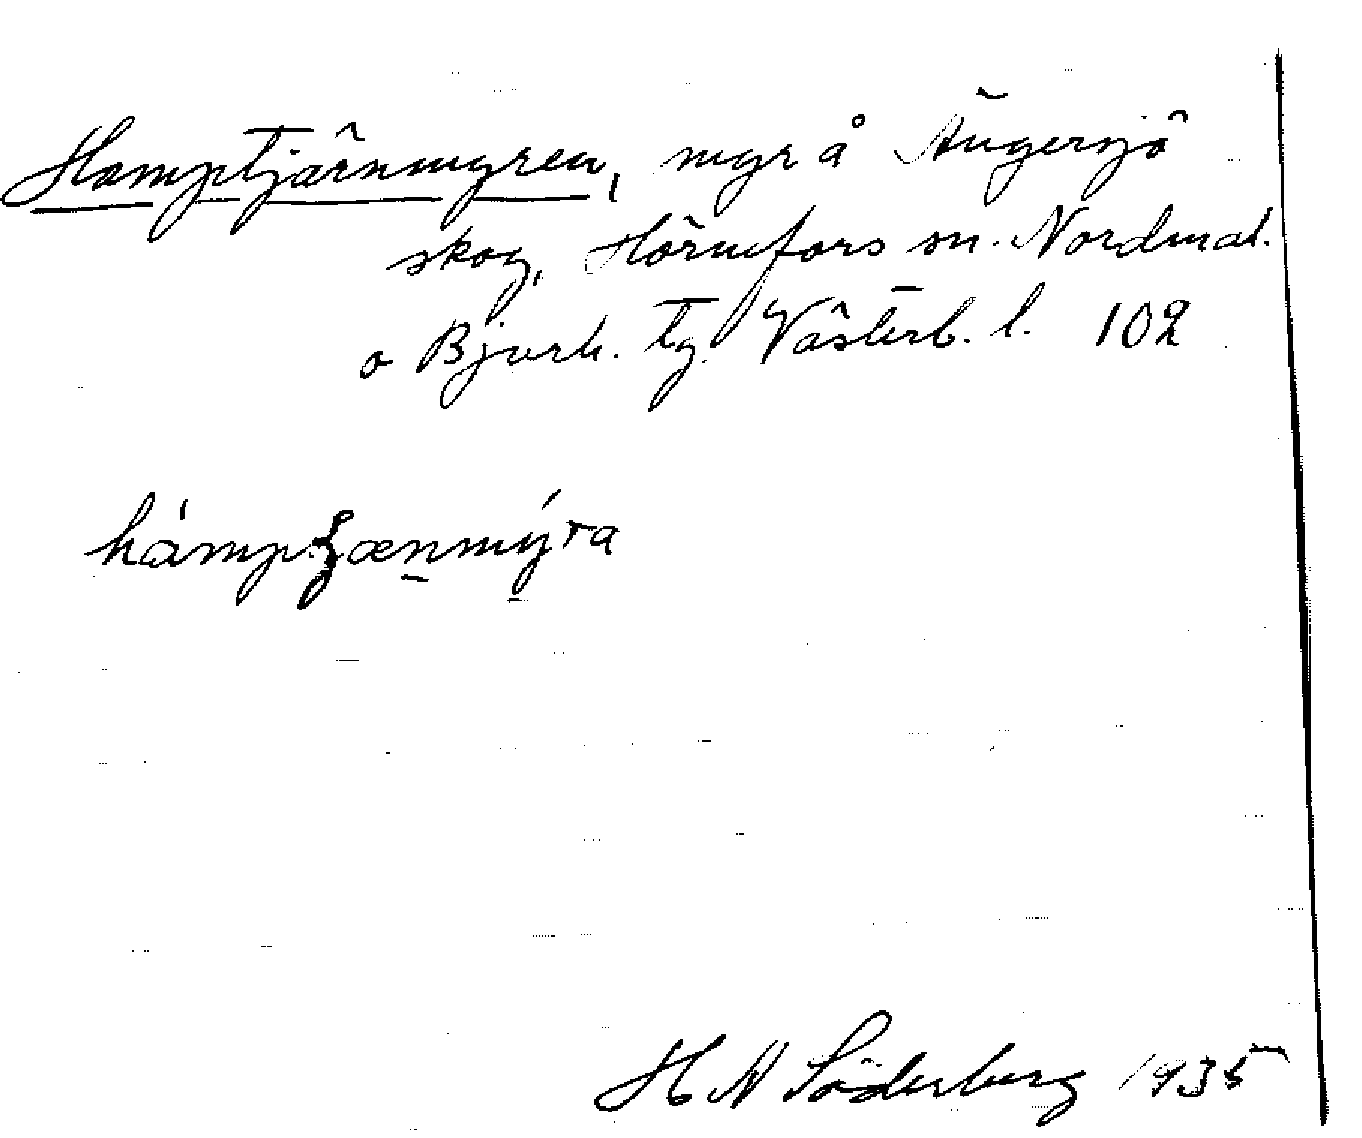 Hamptjärnmyren, myr å Ängersjö
skog, Hörnefors sn. Nordmal.
o Bjurh. tg. Västerb. l. 102
H N Söderberg 1935